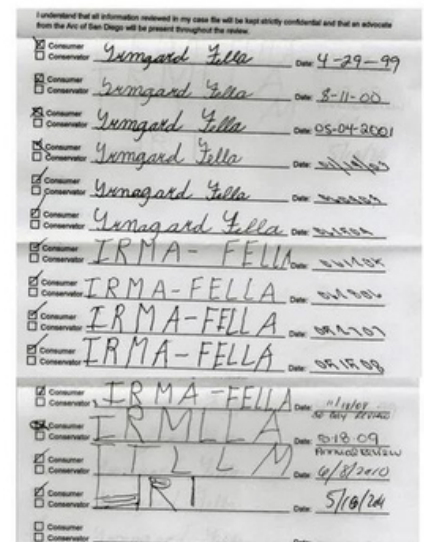 I understand that all information reviewed in my case file will be kept strictly confidential and that an advocate
from the Arc of San Diego will be present throughout the review.
Consumer
Conservator Yrmgard Fella Date: 4-29-99
Consumer
Conservator Yrmgard Fella Date: 8-11-00
Consumer
Conservator Yrmgard Fella Date: 05-04-2001
Consumer
Conservator Yrmgard Fella Date:
Consumer
Conservator Yrnagard Fella Date:
Consumer
Conservator Yrnagard Fella Date:
Consumer
Conservator IRMA- FELLA Date:
Consumer
Conservator IRMA-FELLA Date:
Consumer
Conservator IRMA-FELLA Date:
Consumer
Conservator IRMA-FELLA Date: 051508
Consumer
Conservator IRMA-FELLA Date: 11/18/08
30 DAY REVIEW
Consumer
Conservator IRMLLA Date: 5-18-09
ANNUAL REVIEW
Consumer
Conservator ILLM Date: 6/8/2010
Consumer
Conservator IRI Date: 5/18/2011
Consumer
Conservator Date: